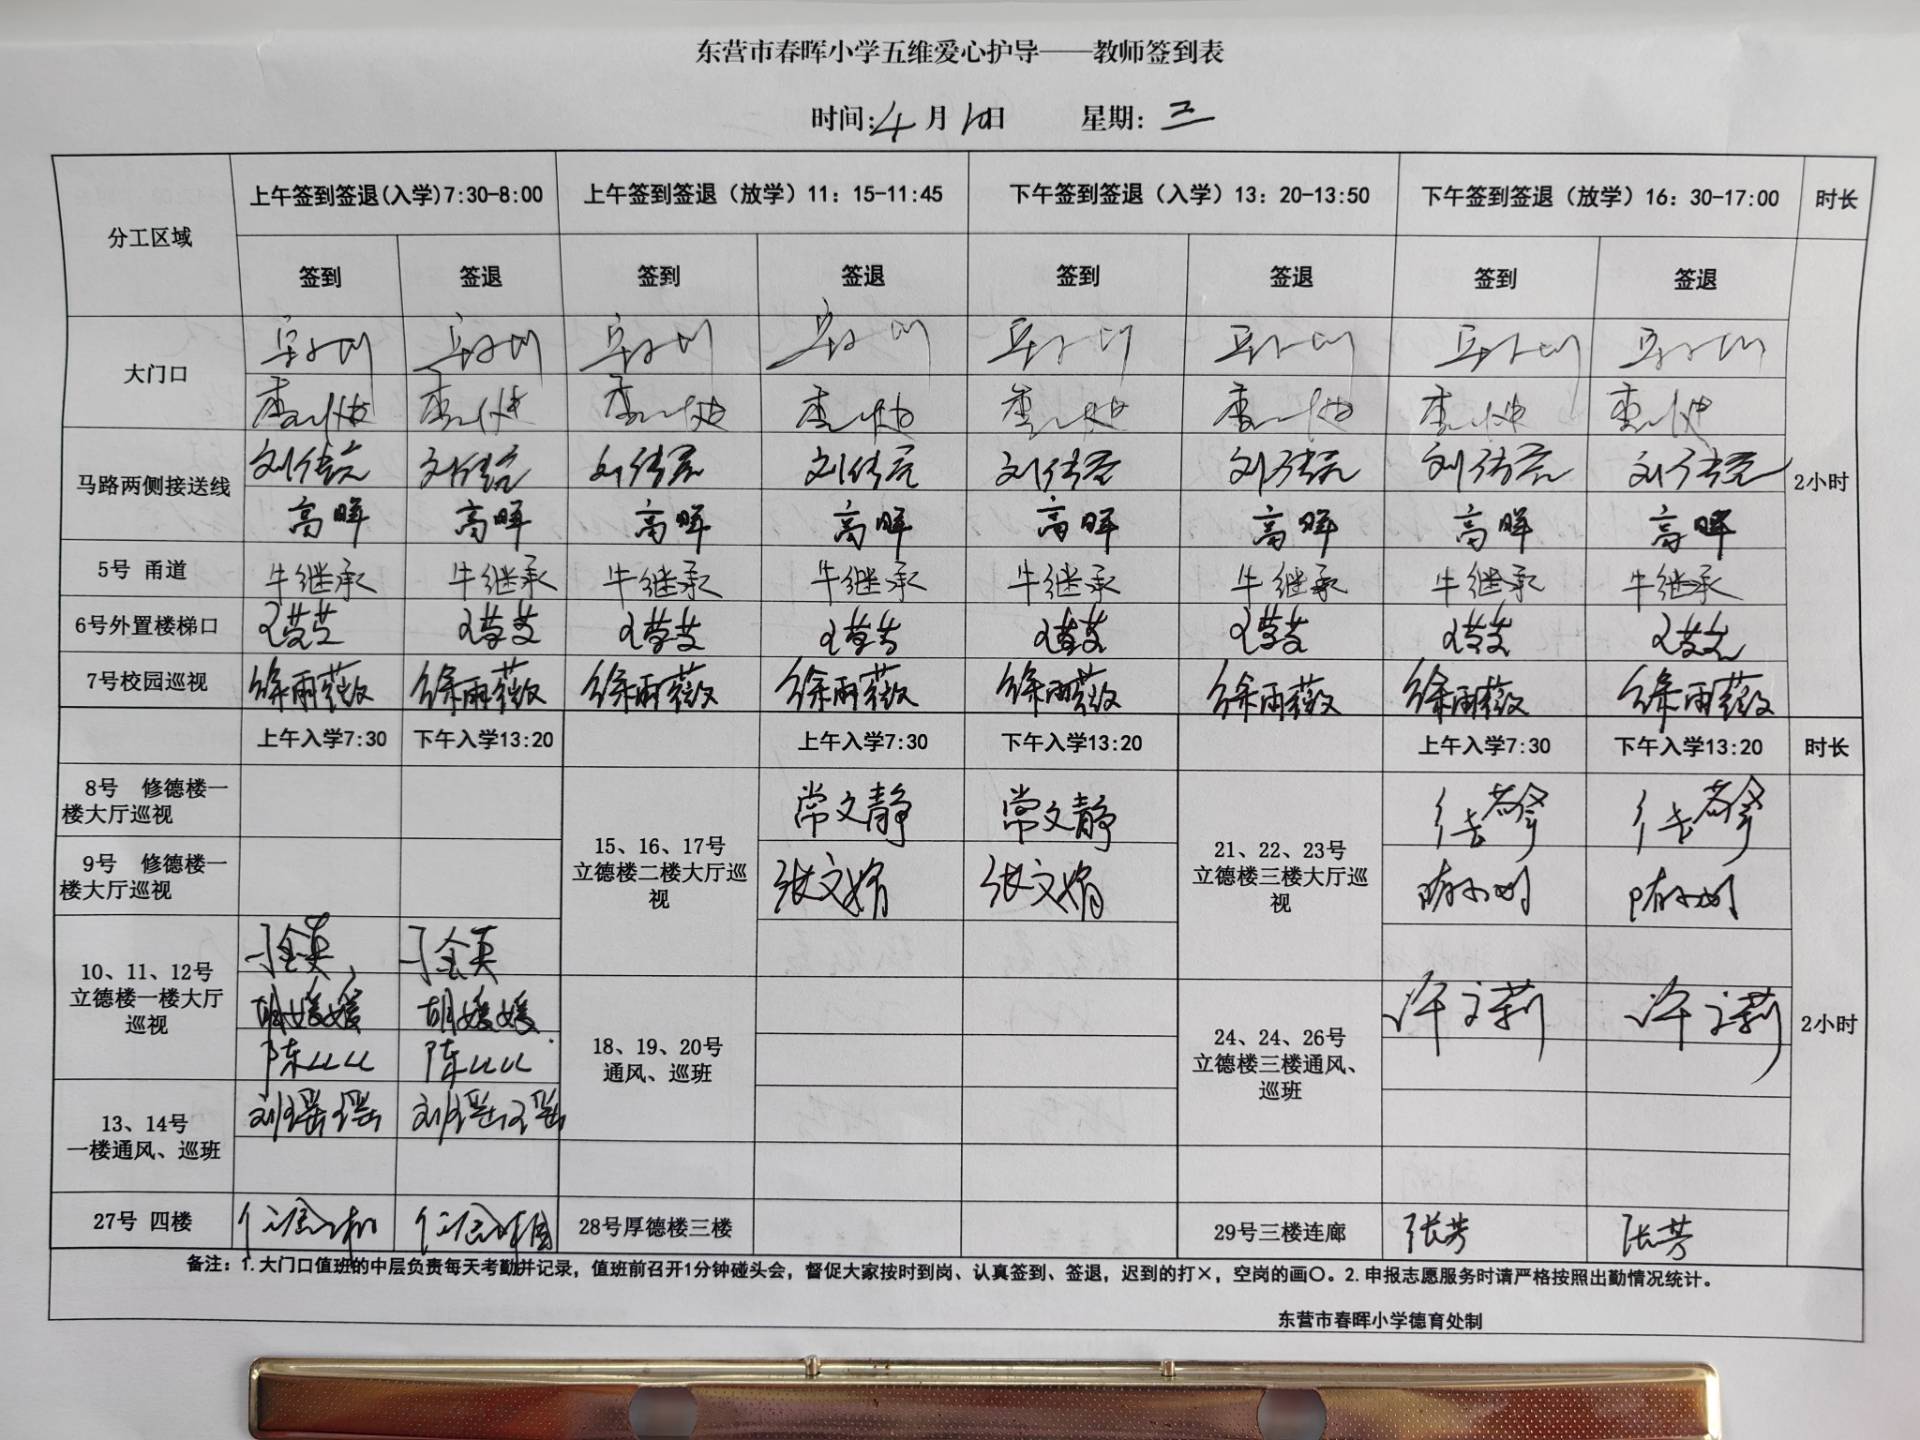 东营市春晖小学五维爱心护导——教师签到表
时间:4月10日 星期:三
分工区域 上午签到签退(入学)7:30-8:00 上午签到签退（放学）11：15-11:45 下午签到签退（入学）13：20-13:50 下午签到签退（放学）16：30-17:00 时长
签到 签退 签到 签退 签到 签退 签到 签退
大门口
马路两侧接送线 刘传亮 刘传亮 刘传亮 刘传亮 刘传亮 刘传亮 刘传亮 刘传亮 2小时
高晖 高晖 高晖 高晖 高晖 高晖 高晖 高晖
5号 甬道 牛继承 牛继承 牛继承 牛继承 牛继承 牛继承 牛继承 牛继承
6号外置楼梯口
7号校园巡视 徐雨薇 徐雨薇 徐雨薇 徐雨薇 徐雨薇 徐雨薇 徐雨薇 徐雨薇
上午入学7:30 下午入学13:20 上午入学7:30 下午入学13:20 上午入学7:30 下午入学13:20 时长
8号 修德楼一
楼大厅巡视
9号 修德楼一
楼大厅巡视
10、11、12号
立德楼一楼大厅
巡视
刁全英 刁全英
胡媛媛 胡媛媛
陈
陈
13、14号
一楼通风、巡班
刘瑶瑶 刘瑶瑶
27号 四楼
15、16、17号
立德楼二楼大厅巡
视
常文静 常文静
张文娟 张文娟
18、19、20号
通风、巡班
28号厚德楼三楼
21、22、23号
立德楼三楼大厅巡
视
24、24、26号
立德楼三楼通风、
巡班
许文莉 许文莉
29号三楼连廊 张芳 张芳
2小时
备注：1.大门口值班的中层负责每天考勤并记录，值班前召开1分钟碰头会，督促大家按时到岗、认真签到、签退，迟到的打×，空岗的画〇。2.申报志愿服务时请严格按照出勤情况统计。
东营市春晖小学德育处制